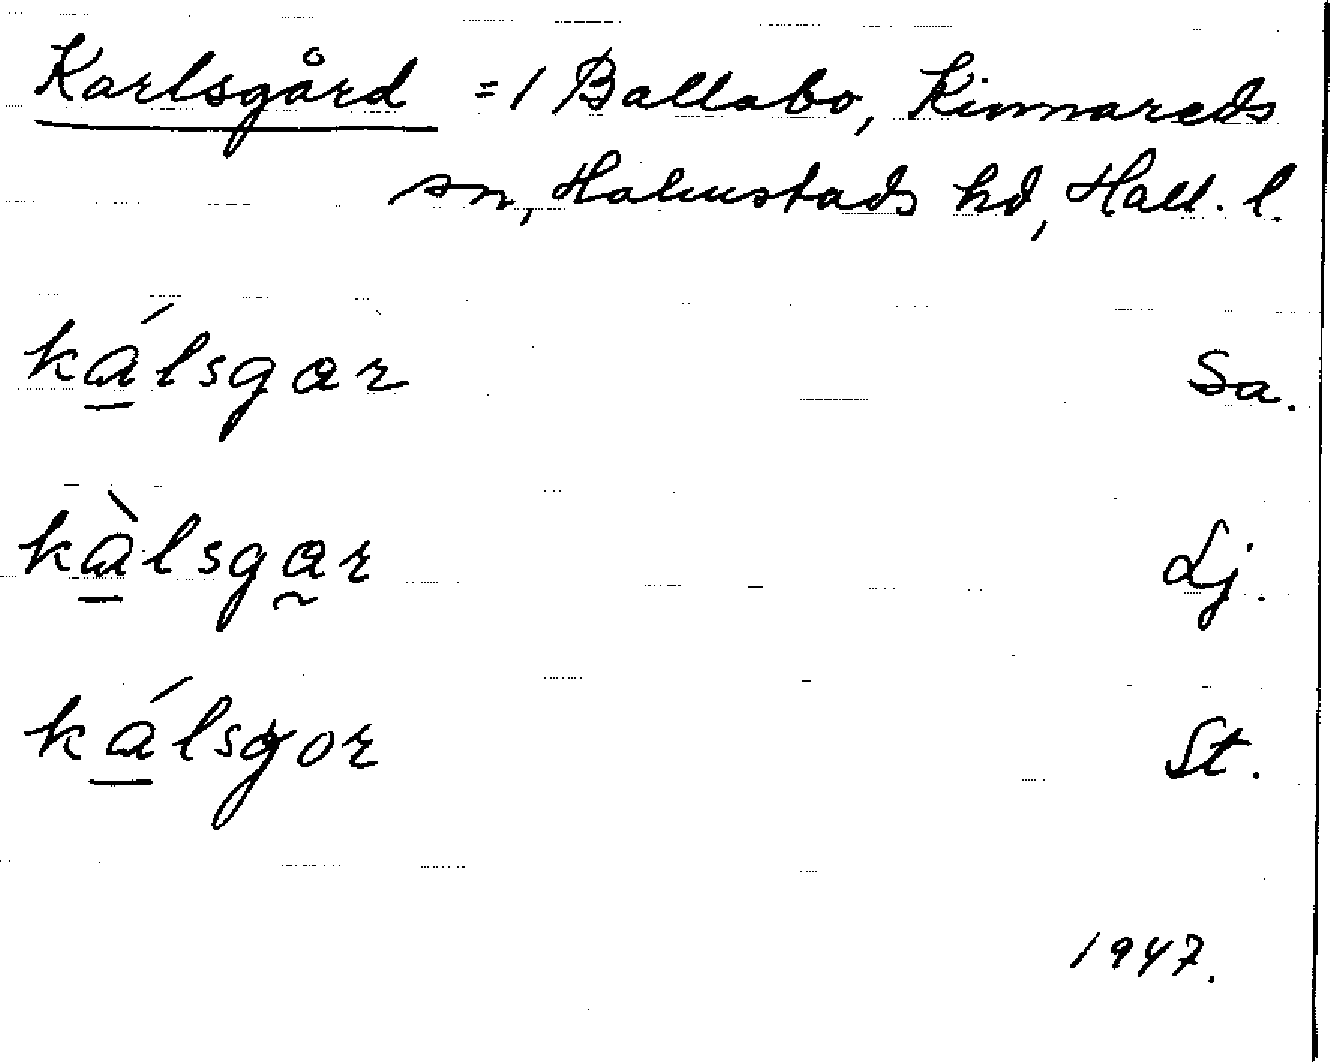 Karlsgård = 1 Ballabo, Kinnareds
sn, Halmstads hd, Hall. l.
ká̱lsgar Sa.
kà̱lsga̰r Lj.
ká̱lsgor St.
1947.